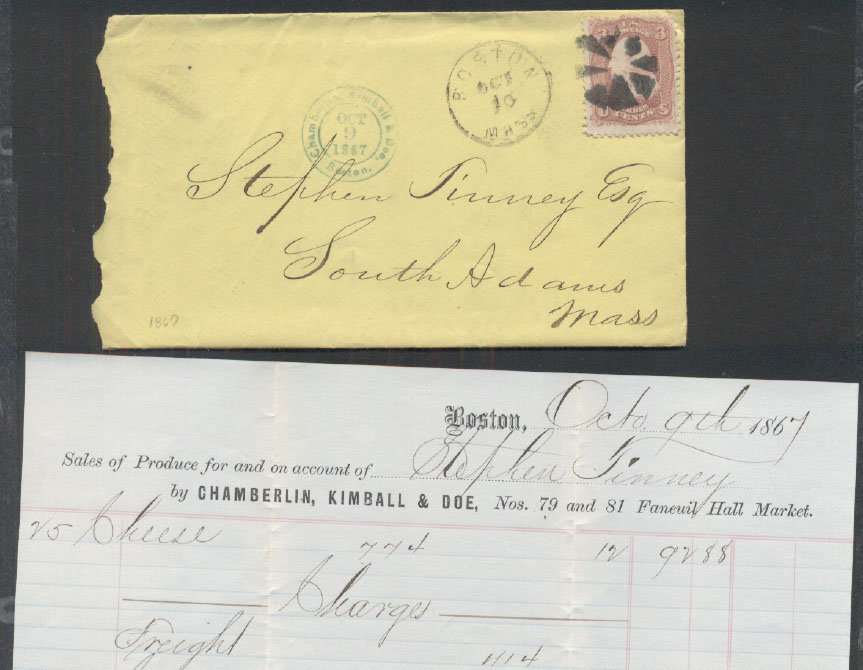 Chamberlin, Kimball & Doe,
OCT
9
1867
Boston.
BOSTON
OCT
10
MASS
3 3
CENTS
Stephen Tinney Esq
South Adams
Mass
1867
Boston, Octo 9th 1867
Sales of Produce for and on account of Stephen Tinney
by CHAMBERLIN, KIMBALL & DOE, Nos. 79 and 81 Faneuil Hall Market.
25 Cheese 774 12 92 88
Charges
Freight 414